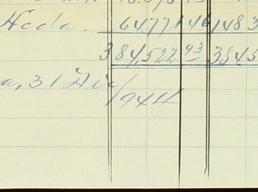 Hcda. 64771 46 1483
384,522 93 3845
a, 31 Dic/
1944